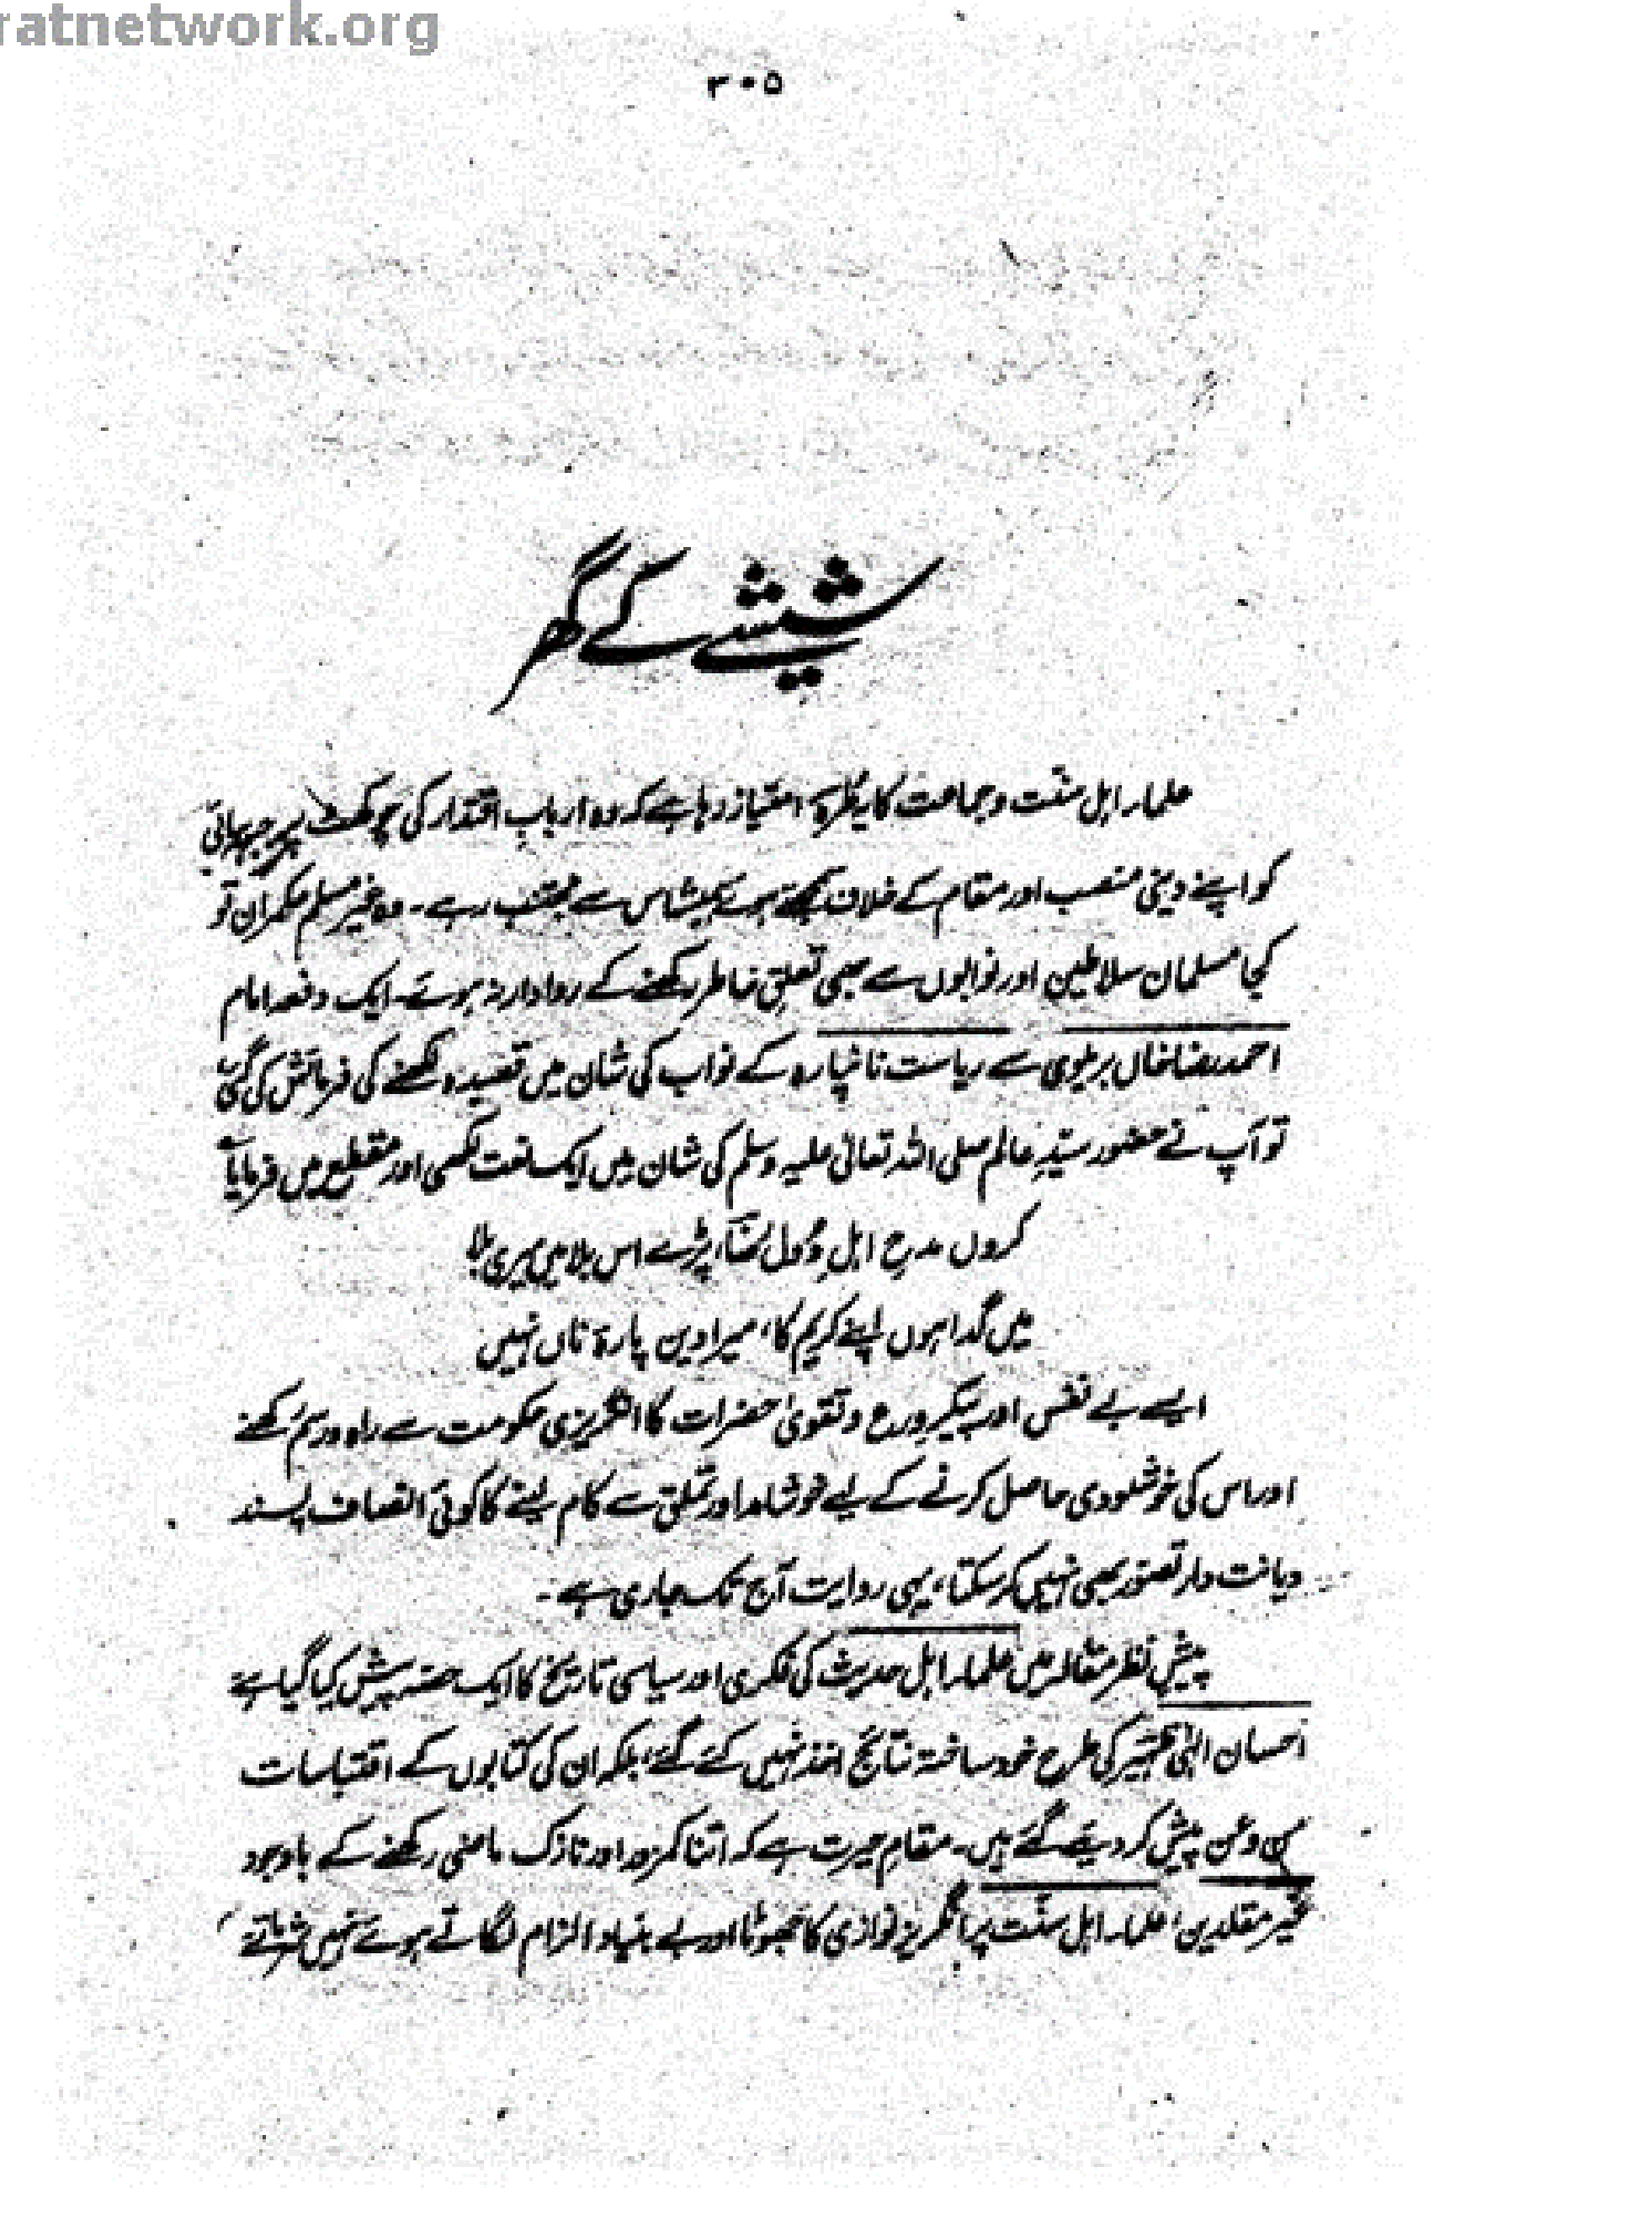 ratnetwork.org
۳۰۵
شیشے کے گھر
علماء اہل سنّت و جماعت کا یہ طُرّہ امتیاز رہا ہے کہ وہ اربابِ اقتدار کی چوکھٹ پر جبہہ سائی
کو اپنے دینی منصب اور مقام کے خلاف سمجھتے ہوئے ہمیشہ اس سے مجتنب رہے۔ وہ غیر مسلم حکمران تو
کجا مسلمان سلاطین اور نوابوں سے بھی تعلقِ خاطر رکھنے کے روادار نہ ہوتے۔ ایک دفعہ امام
احمد رضا خاں بریلوی سے ریاست نانپارہ کے نواب کی شان میں قصیدہ لکھنے کی فرمائش کی گئی
تو آپ نے حضور سیّدِ عالم صلی اللہ تعالیٰ علیہ وسلم کی شان میں ایک نعت لکھی اور مقطع میں فرمایا ؎
کروں مدحِ اہلِ دُوَل رضؔا، پڑے اس بلا میں میری بلا
میں گدا ہوں اپنے کریم کا، میرا دین پارۂ ناں نہیں
ایسے بے نفس اور پیکرِ ورع و تقویٰ حضرات کا انگریزی حکومت سے راہ و رسم رکھنے
اور اس کی خوشنودی حاصل کرنے کے لیے خوشامد اور تملّق سے کام لینے کا کوئی انصاف پسند
دیانت دار تصوّر بھی نہیں کر سکتا، یہی روایت آج تک جاری ہے۔
پیشِ نظر مقالہ میں علماء اہل حدیث کی فکری اور سیاسی تاریخ کا ایک حصّہ پیش کیا گیا ہے
احسان الٰہی ظہیر کی طرح خود ساختہ نتائج اخذ نہیں کئے گئے، بلکہ ان کی کتابوں کے اقتباسات
من و عن پیش کر دیئے گئے ہیں۔ مقامِ حیرت ہے کہ اتنا کمزور اور نازک ماضی رکھنے کے باوجود
غیر مقلدین، علماء اہل سنّت پر انگریز نوازی کا جھوٹا اور بے بنیاد الزام لگاتے ہوئے نہیں شرماتے